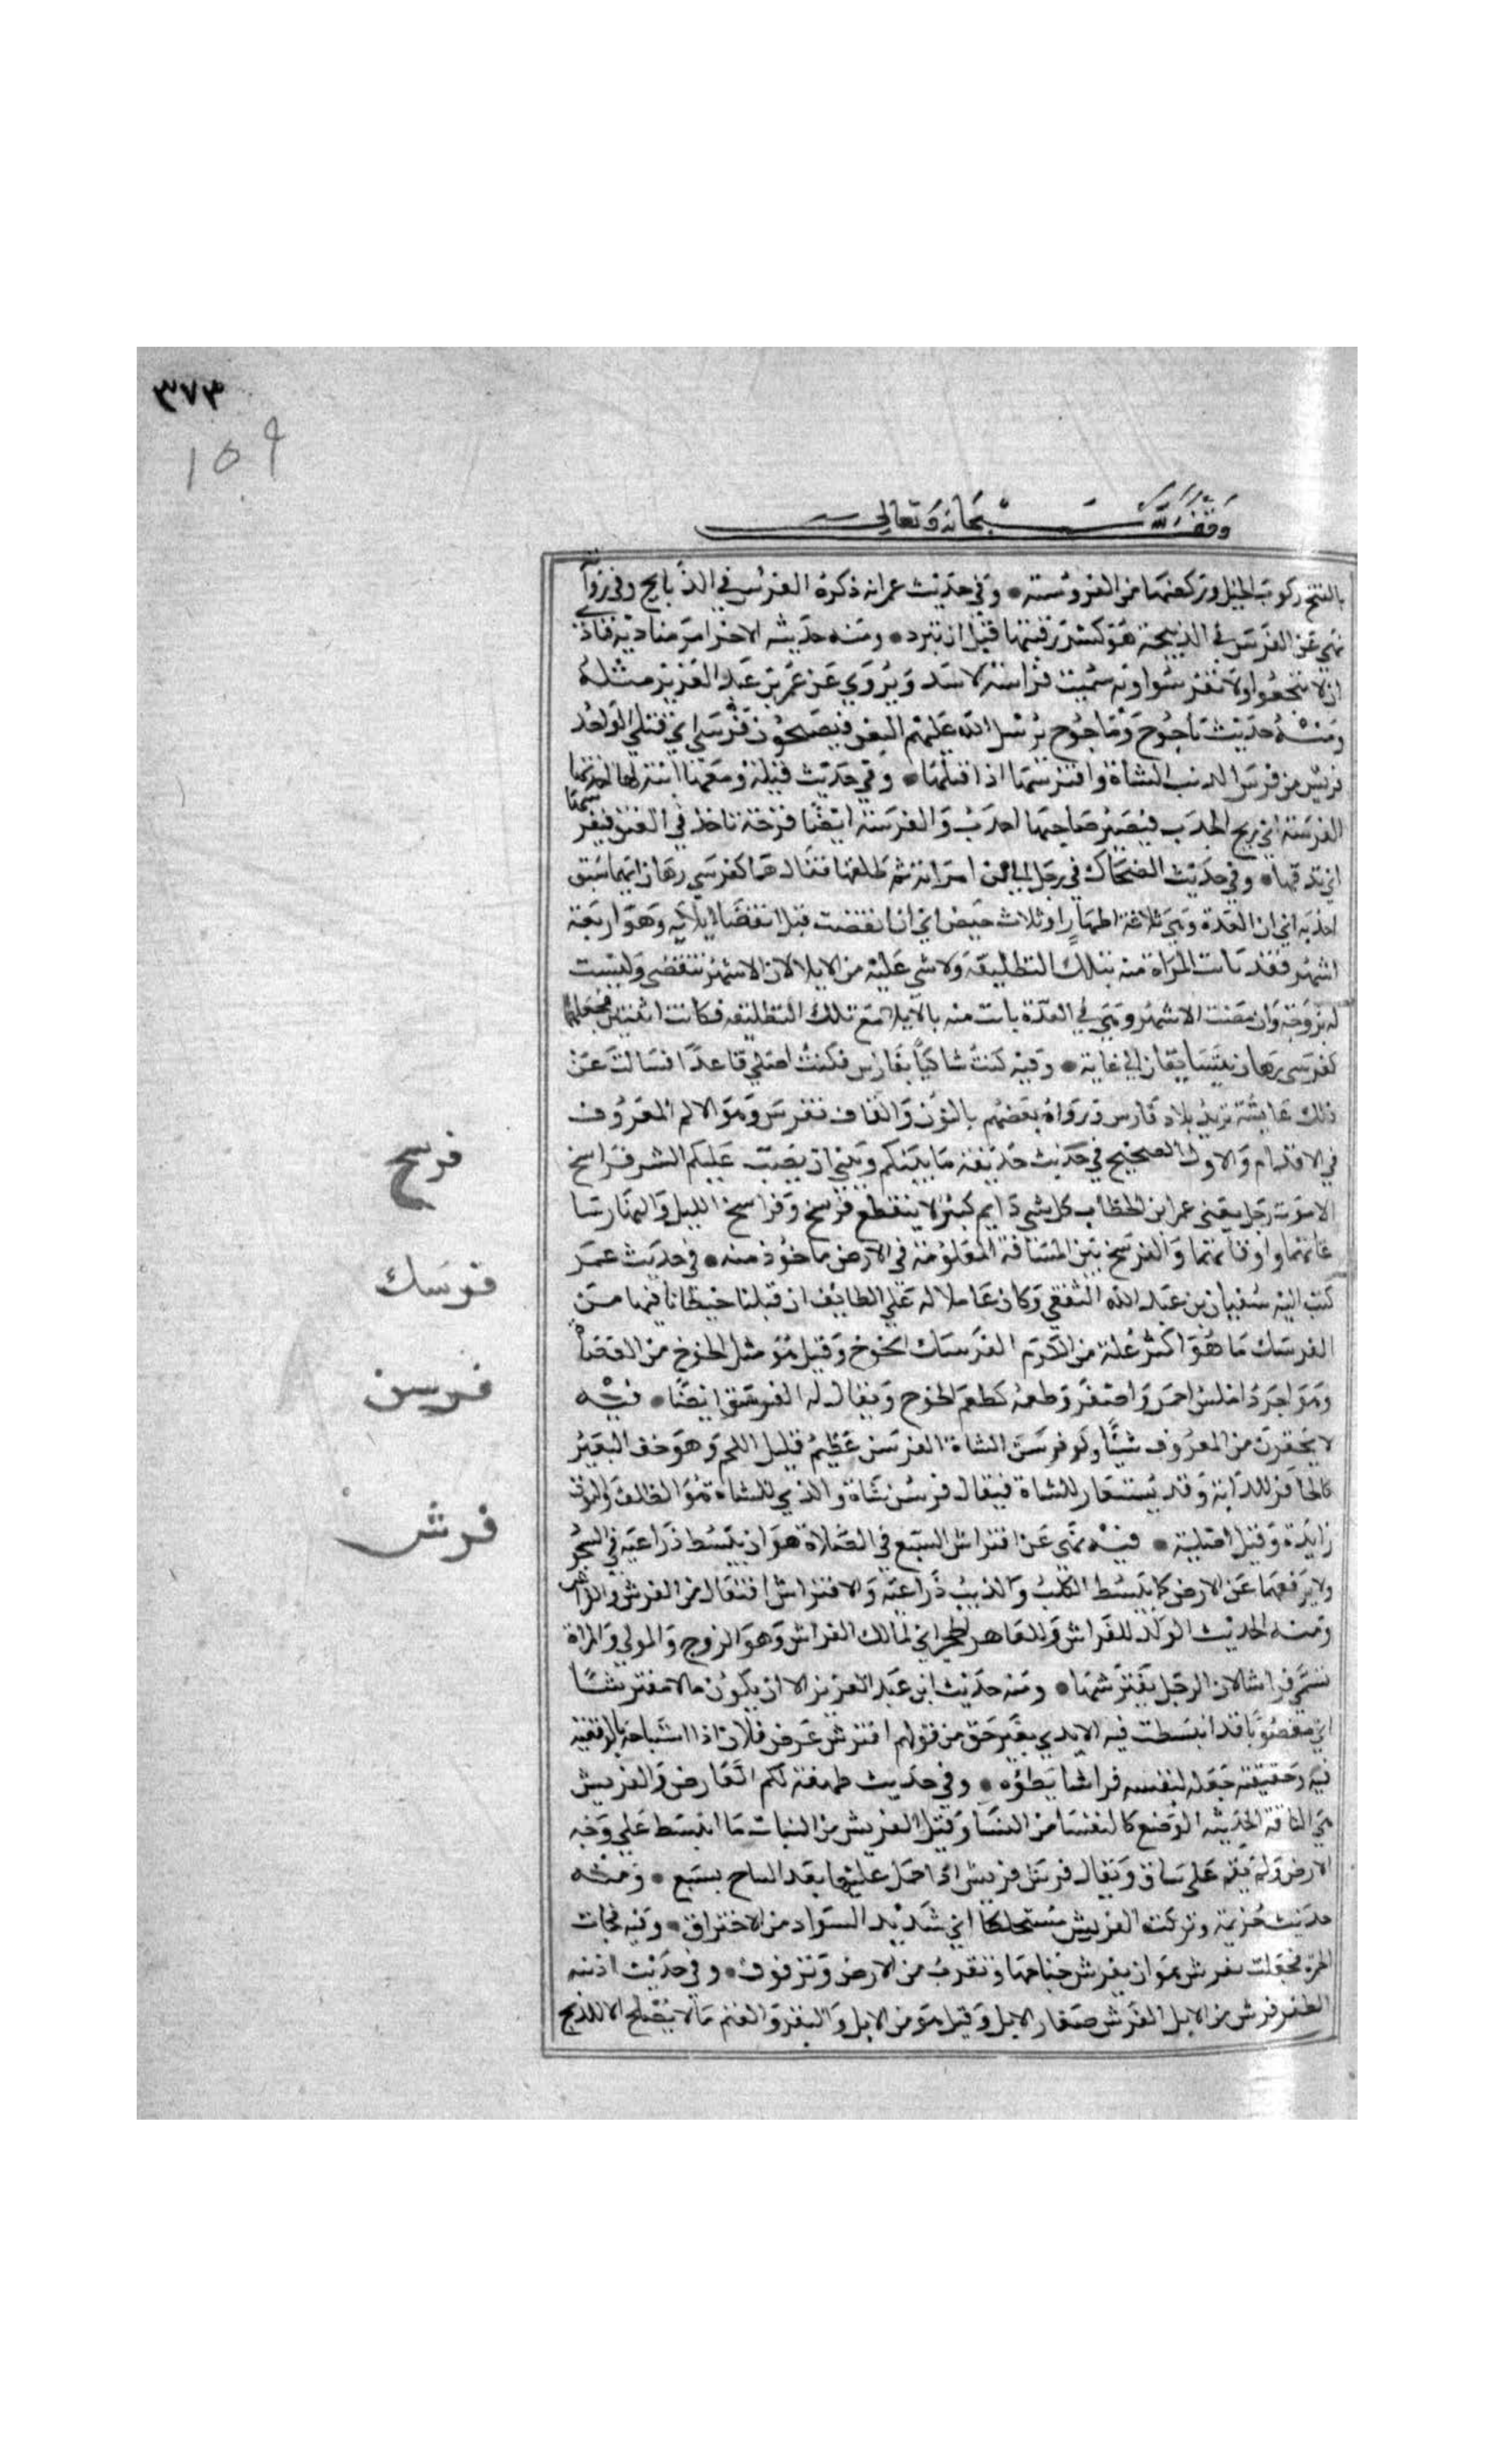 ٣٧٣
١٥٩
وقف لله سبحانه وتعالى
بالفتح ركوب الخيل وركضها من الفروسية • وفي حديث عمر انه ذكره الفرس في الذبايح وفي رواية
نهي عن الفرس في الذبيحة هو كسر رقبتها قبل ان تبرد • ومنه حديثه الاخر امر مناديه فنادى
ان لا تنخعوا ولا تفرسوا وبه سميت فراسة الاسد ويروي عن عمر بن عبد العزيز مثله
ومنه حديث ياجوج وماجوج يرسل الله عليهم النغف فيصبحون فرسى اي قتلى الواحد
فريس من فرس الذئب الشاة وافترسها اذا قتلها • وفي حديث قيلة ومعها ابنة لها احدثها
الفرسة اي ريح الحدب فيصير صاحبها احدب والفرسة ايضا قرحة تاخذ في العنق فيفرسها
اي تدقها • وفي حديث الضحاك في رجل الى من امراته ثم طلقها فقال هما كفرسي رهان ايهما سبق
اخذ به اي ان العدة وهي ثلاثة اطهار او ثلاث حيض اي ان انقضت قبل انقضا ايلايه وهو اربعة
اشهر فقد بانت المراة منه بتلك التطليقة ولا شي عليه من الايلا لان الاشهر تنقضي وليست
له بزوجة وان مضت الاشهر وهي في العدة بانت منه بالايلا مع تلك التطليقة فكانت اثنتين فجعلهما
كفرسي رهان يتسابقان الى غاية • وفيه كنت شاكيا بفارس فكنت اصلي قاعدا فسالت عن
ذلك عايشة تريد بلاد فارس ورواه بعضهم بالنون والقاف نقرس وهو الالم المعروف
في الاقدام والاول الصحيح في حديث حذيفة ما بينكم وبين ان يصب عليكم الشر فراسخ
الا موت رجل يعني عمر ابن الخطاب كل شي دايم كثير لا ينقطع فرسخ وفراسخ الليل والنهار ساعاتهما
واوقاتهما والفرسخ من المسافة المعلومة في الارض ماخوذ منه • في حديث عمر
كتب اليه سفيان بن عبد الله الثقفي وكان عاملا له علي الطايف ان قبلنا حيطانا فيها من
الفرسك ما هو اكثر غلة من الكرم الفرسك الخوخ وقيل هو مثل الخوخ من العضاه
وهو اجرد املس احمر واصفر وطعمه كطعم الخوخ ويقال له الفرسق ايضا • فيه
لا تحقرن من المعروف شيئا ولو فرسن الشاة الفرسن عظيم قليل اللحم وهو خف البعير
كالحافر للدابة وقد يستعار للشاة فيقال فرسن شاة والذي للشاة هو الظلف والنون
زايدة وقيل اصلية • فيه نهي عن افتراش السبع في الصلاة هو ان يبسط ذراعيه في السجود
ولا يرفعهما عن الارض كما يبسط الكلب والذيب ذراعيه والافتراش افتعال من الفرش والفراش
ومنه الحديث الولد للفراش وللعاهر الحجر اي لمالك الفراش وهو الزوج والمولي والمراة
تسمى فراشا لان الرجل يفترشها • ومنه حديث ابن عبد العزيز الا ان يكون مالا مفترشا
اي مغصوبا قد انبسطت فيه الايدي بغير حق من قولهم افترش عرض فلان اذا استباحه بالوقيعة
فيه وحقيقته جعله لنفسه فراشا يطؤه • وفي حديث طهفة لكم العارض والفريش
هي الناقة الحديثة الوضع كالنفسا من النسا وقيل الفريش من النبات ما انبسط علي وجه
الارض ولم يقم علي ساق ويقال فرس فريش اذا حمل عليها بعد النتاج بسبع • ومنه
حديث خزيمة وتركت الفريش مستحلكا اي شديد السواد من الاحتراق • وفيه فجات
الحمرة فجعلت تفرش هو ان يفرش جناحها وتقرب من الارض وترفرف • وفي حديث اذينه
الظفر فرش من الابل الفرش صغار الابل وقيل هو من الابل والبقر والغنم ما لا يصلح الا للذبح
فرسخ
فرسك
فرسن
فرش